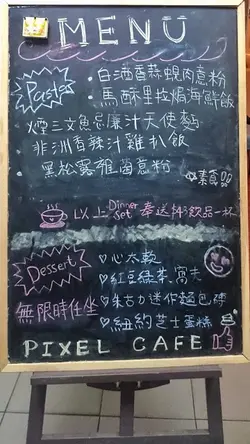 MENU
Pasta
·白酒香蒜蜆肉意粉
·馬酥里拉焗海鮮飯
煙三文魚忌廉汁天使麵
非洲香辣汁雞扒飯
黑松露雜菌意粉
素食
以上 Dinner Set 奉送杯飲品一杯
Dessert
♡心太軟
♡紅豆綠茶窩夫
♡朱古力迷你超巴陣
♡紐約芝士蛋糕
無限時任坐
PIXEL CAFE